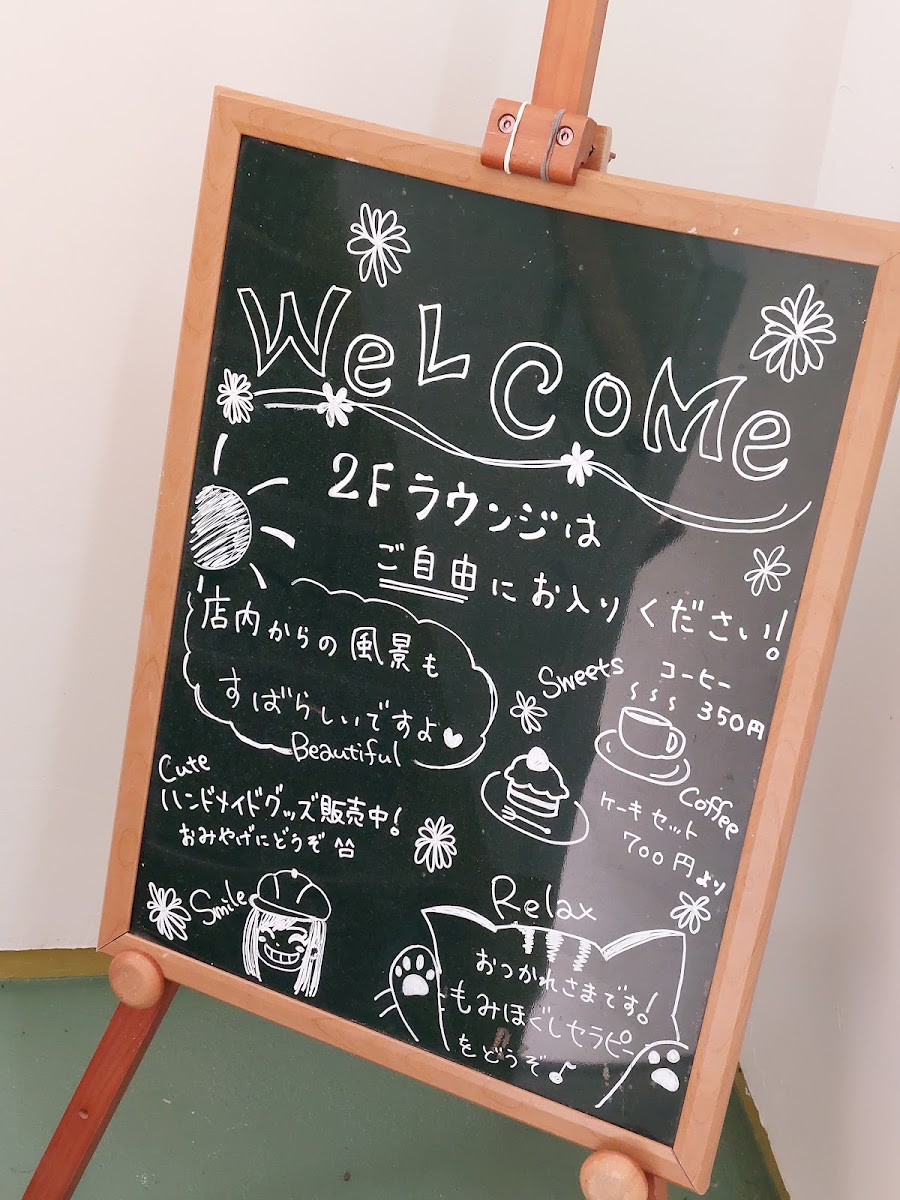 WeLCoMe
2Fラウンジは
ご自由にお入りください!
店内からの風景も
すばらしいですよ♥
Beautiful
Sweets
コーヒー
350円
Coffee
ケーキセット
700円より
Cute
ハンドメイドグッズ販売中!
おみやげにどうぞ^^
Smile
Relax
おつかれさまです!
もみほぐしセラピー
をどうぞ♪